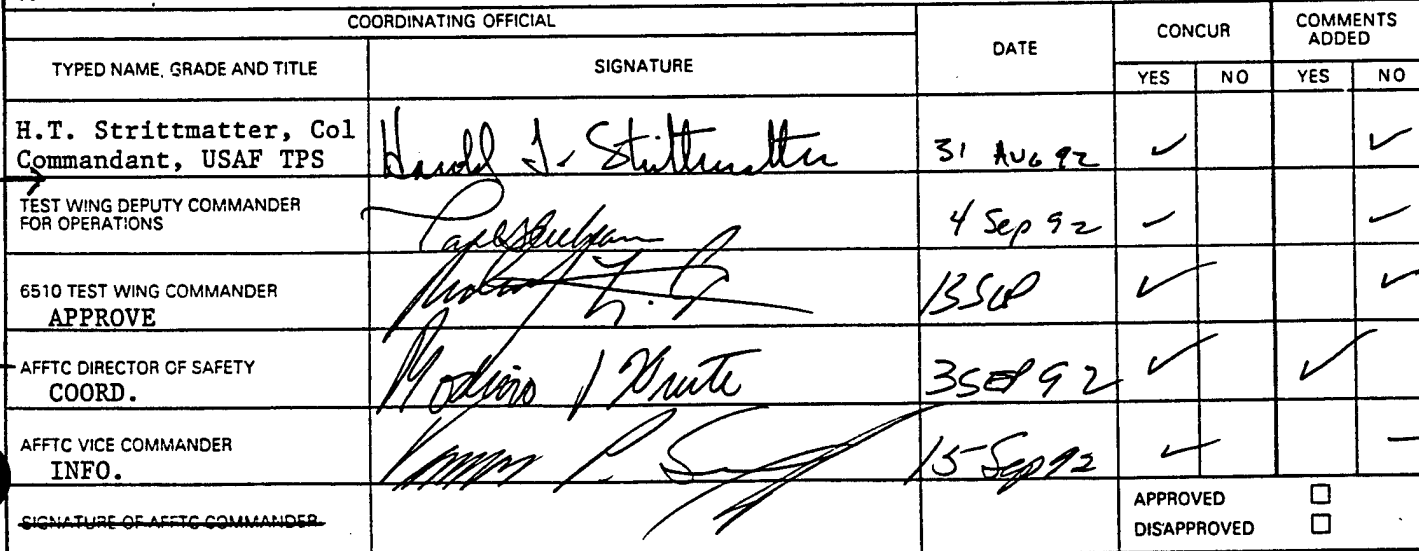 COORDINATING OFFICIAL
DATE
CONCUR
COMMENTS ADDED
TYPED NAME, GRADE AND TITLE
SIGNATURE
YES
NO
YES
NO
H.T. Strittmatter, Col
Commandant, USAF TPS
Harold T. Strittmatter
31 AUG 92
TEST WING DEPUTY COMMANDER
FOR OPERATIONS
4 Sep 92
6510 TEST WING COMMANDER
APPROVE
13 SEP
AFFTC DIRECTOR OF SAFETY
COORD.
3 SEP 92
AFFTC VICE COMMANDER
INFO.
15 Sep 92
SIGNATURE OF AFFTC COMMANDER
APPROVED
DISAPPROVED